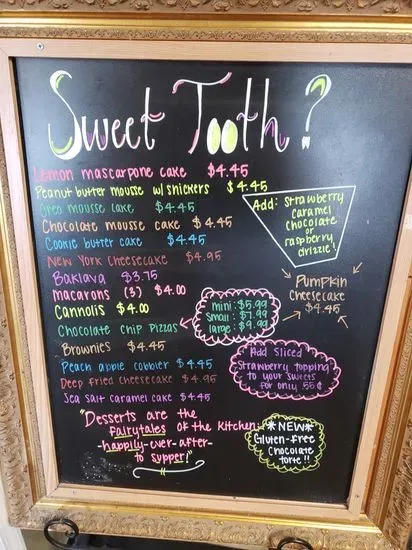 Sweet Tooth?
Lemon mascarpone cake $4.45
Peanut butter mousse w/ snickers $4.45
Oreo mousse cake $4.45
Chocolate mousse cake $4.45
Cookie butter cake $4.45
New York Cheesecake $4.95
Baklava $3.75
macarons (3) $4.00
Cannolis $4.00
Chocolate Chip Pizzas
Brownies $4.45
Peach apple cobbler $4.45
Deep fried cheesecake $4.95
Sea salt caramel cake $4.45
Add: Strawberry
caramel
chocolate
or
raspberry
drizzle!
Pumpkin
Cheesecake
$4.45
mini: $5.99
small: $7.99
large: $9.99
Add sliced
Strawberry topping
to your sweets
for only .55¢
"Desserts are the
fairytales of the kitchen
-happily-ever-after-
to supper!"
*NEW*
Gluten-free
Chocolate
torte!!